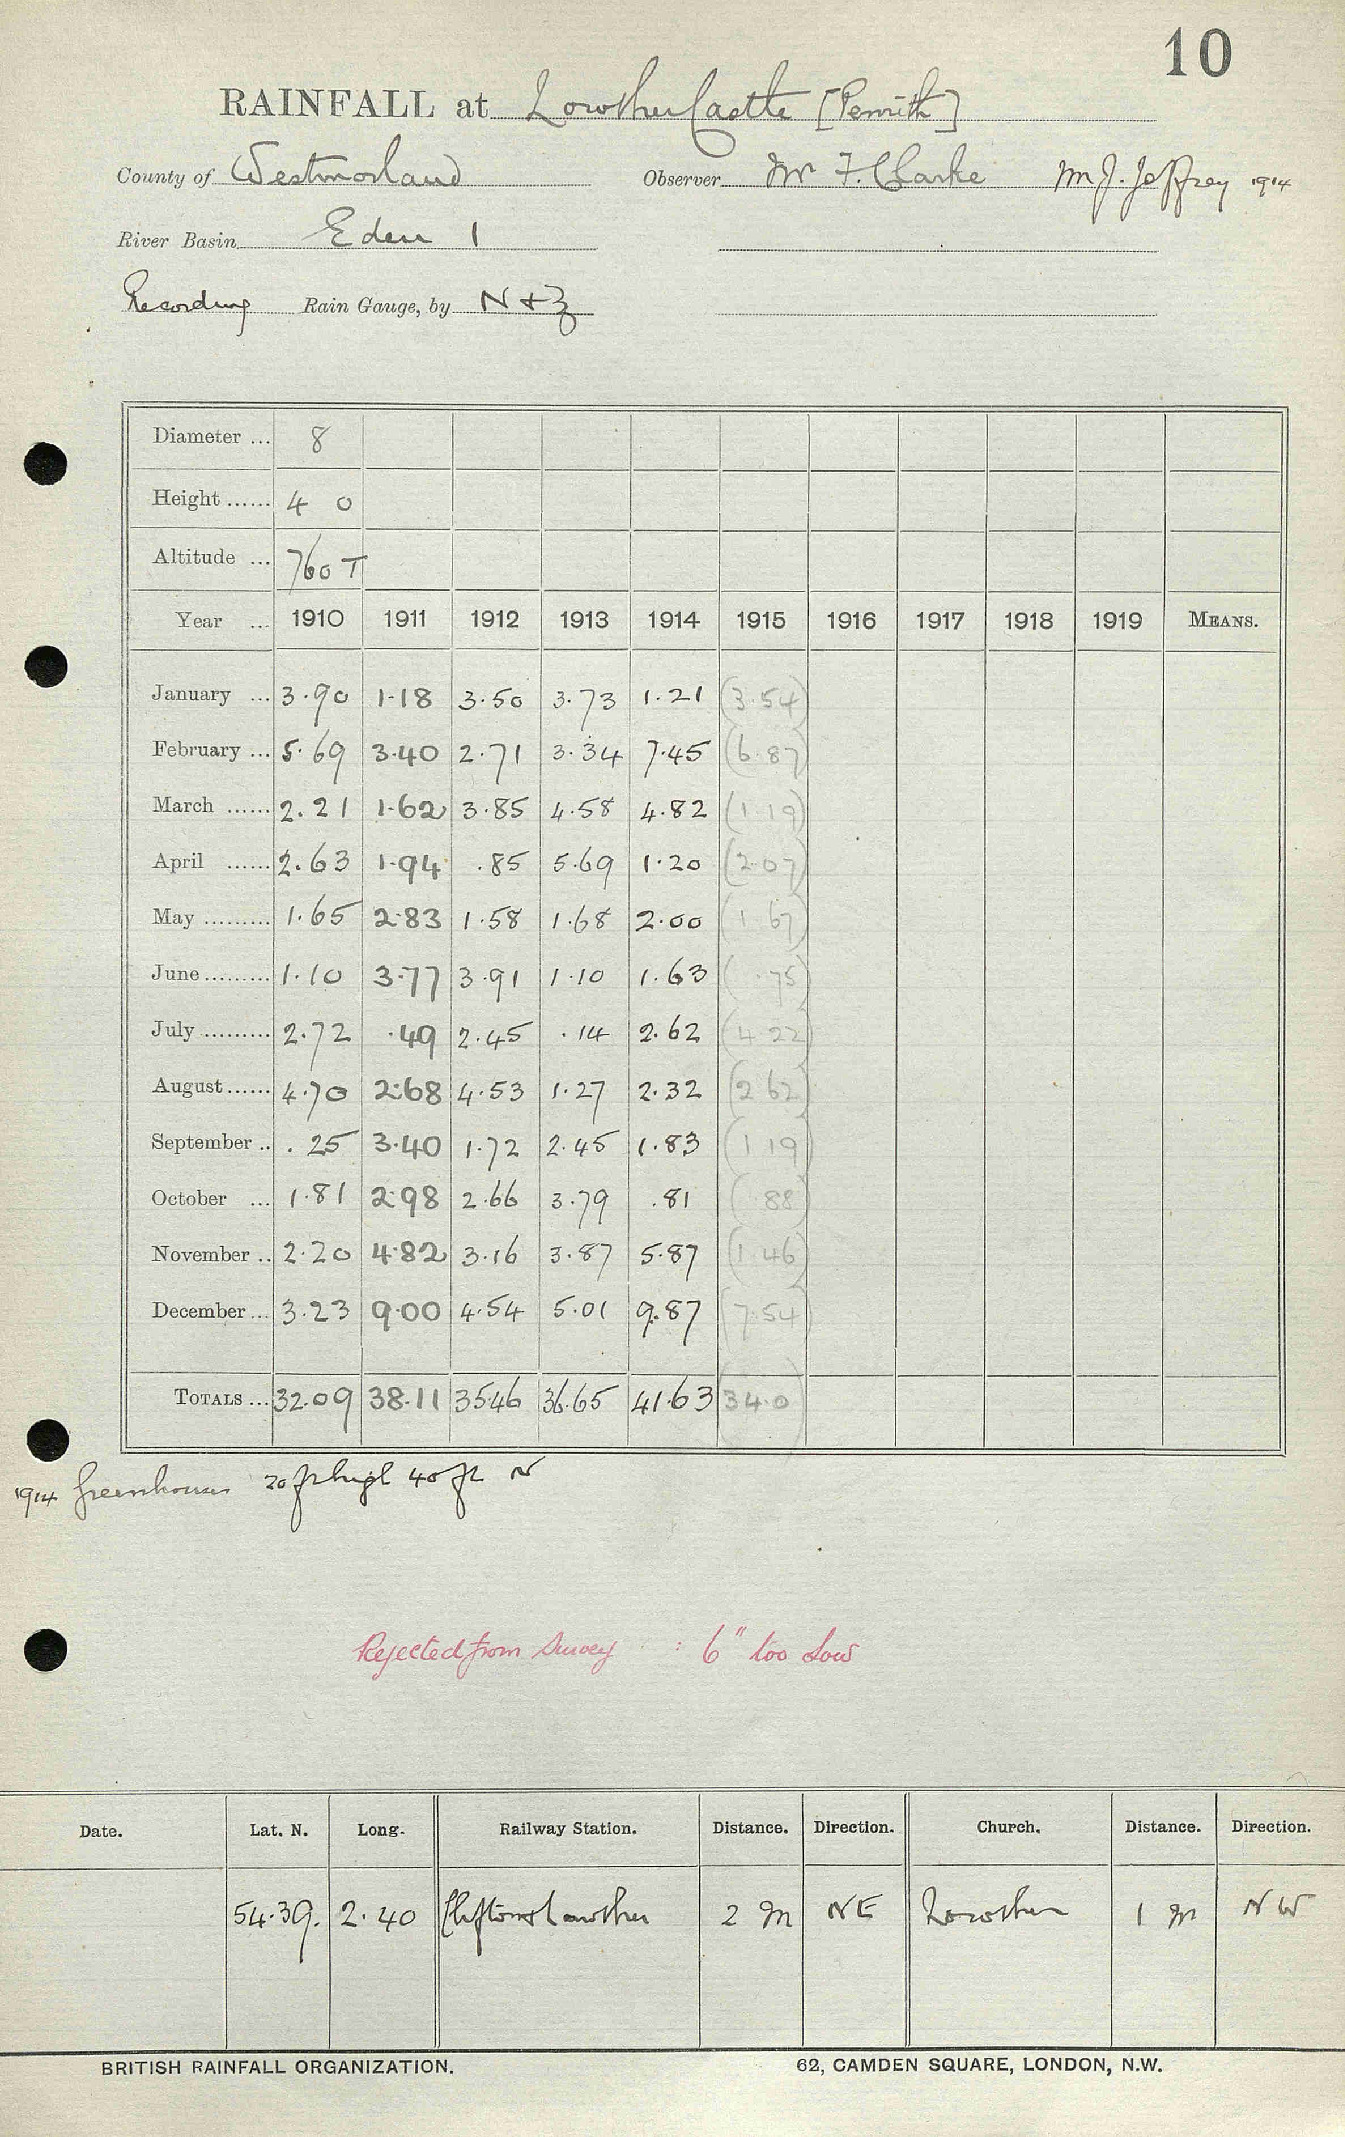 10
RAINFALL at Lowther Castle [Penrith]
County of Westmorland Observer Mr F. Clarke Mr J. Jeffrey 1914
River Basin Eden 1
Recording Rain Gauge, by N + Z
Diameter ... 8
Height ...... 4 0
Altitude ... 760 T
Year ... 1910 1911 1912 1913 1914 1915 1916 1917 1918 1919 MEANS.
January ... 3.90 1.18 3.50 3.73 1.21 (3.54)
February ... 5.69 3.40 2.71 3.34 7.45 (6.87)
March ...... 2.21 1.62 3.85 4.58 4.82 (1.19)
April ...... 2.63 1.94 .85 5.69 1.20 (2.07)
May ......... 1.65 2.83 1.58 1.68 2.00 (1.67)
June ......... 1.10 3.77 3.91 1.10 1.63 (.75)
July ......... 2.72 .49 2.45 .14 2.62 (4.22)
August ...... 4.70 2.68 4.53 1.27 2.32 (2.62)
September .. .25 3.40 1.72 2.45 1.83 (1.19)
October ... 1.81 2.98 2.66 3.79 .81 (.88)
November .. 2.20 4.82 3.16 3.87 5.87 (1.46)
December ... 3.23 9.00 4.54 5.01 9.87 (7.54)
TOTALS ... 32.09 38.11 35.46 36.65 41.63 (34.0)
1914 Greenhouse 20 ft high 40 ft N
Rejected from Survey : 6" too low
Date. Lat. N. Long. Railway Station. Distance. Direction. Church. Distance. Direction.
54.39. 2.40 Clifton & Lowther 2 m NE Lowther 1 m NW
BRITISH RAINFALL ORGANIZATION. 62, CAMDEN SQUARE, LONDON, N.W.